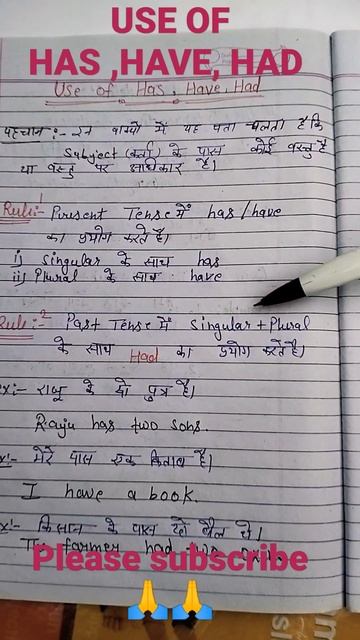 USE OF
HAS ,HAVE, HAD
Use of Has, Have, Had
पहचान :- इन वाक्यों में यह पता चलता है कि
Subject (कर्ता) के पास कोई वस्तु है
या वस्तु पर अधिकार है।
Rule:-1 Present Tense में has/have
का प्रयोग करते है।
i) Singular के साथ has
ii) Plural के साथ have
Rule:-2 Past Tense में Singular + Plural
के साथ Had का प्रयोग करते है।
Ex:- राजू के दो पुत्र है।
Raju has two sons.
Ex:- मेरे पास एक किताब है।
I have a book.
Ex:- किसान के पास दो बैल थे।
The farmer had two
Please subscribe
🙏🙏